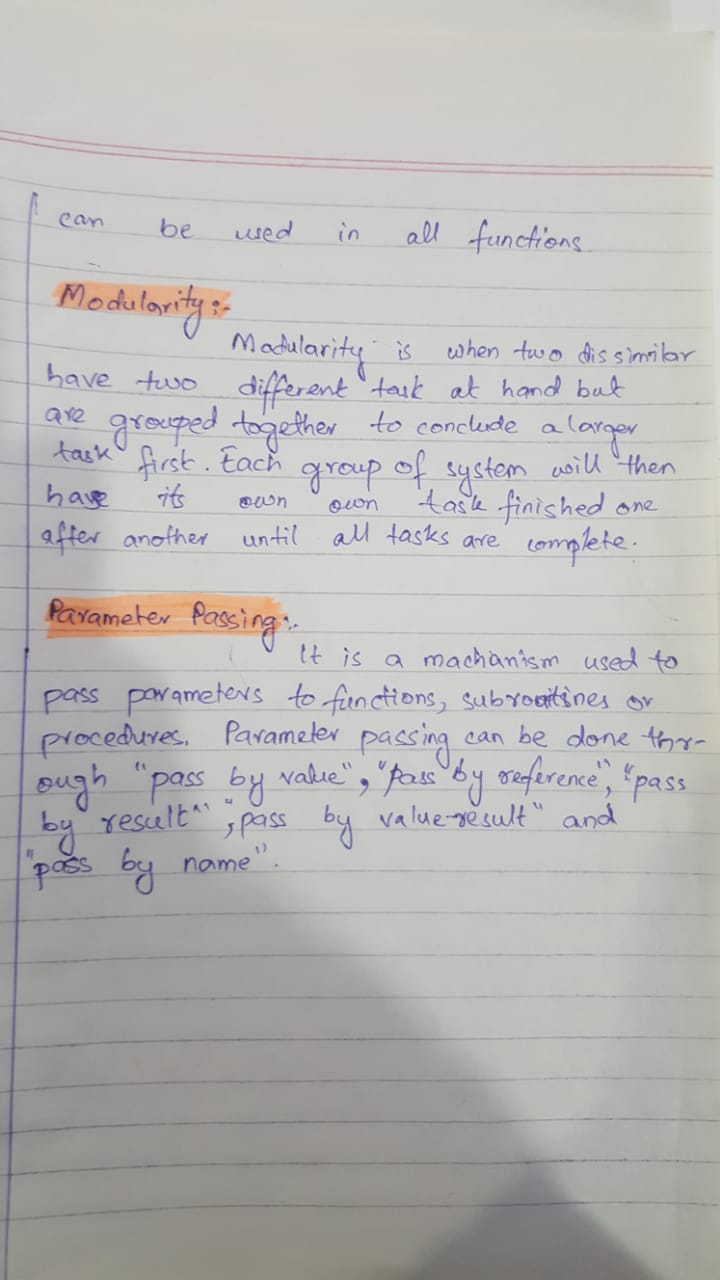 can be used in all functions.
Modularity :-
Modularity is when two dissimilar
have two different task at hand but
are grouped together to conclude a larger
task first. Each group of system will then
have its own own task finished one
after another until all tasks are complete.
Parameter Passing :-
It is a machanism used to
pass parameters to functions, subroutines or
procedures. Parameter passing can be done thr-
ough "pass by value", "pass by reference", "pass
by result" ", pass by value-result" and
"pass by name".